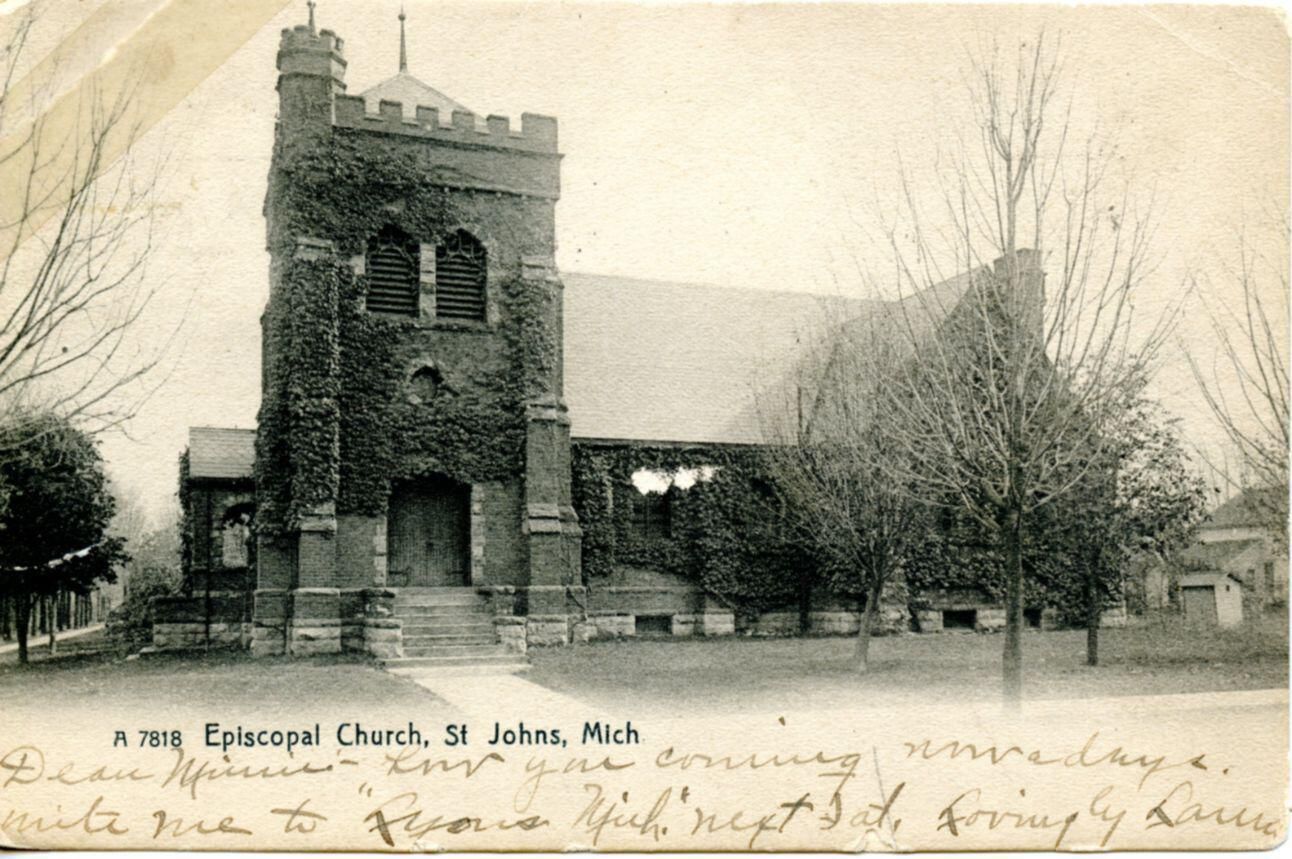 A 7818 Episcopal Church, St Johns, Mich
Dear Minnie - How you coming nowadays.
write me to "Lyons Mich." next Sat. Lovingly Laura